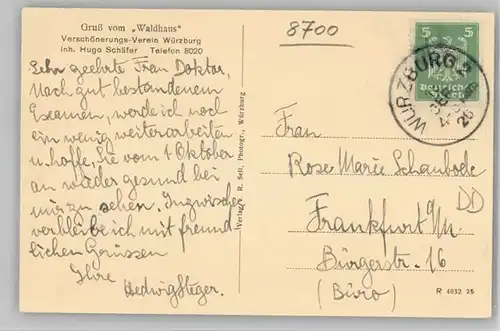 Gruß vom „Waldhaus"
Verschönerungs-Verein Würzburg
Inh. Hugo Schäfer Telefon 8020
Sehr geehrte Frau Doktor,
Nach gut bestandenem
Examen, werde ich noch
ein wenig weiterarbeiten
u. hoffe, Sie vom 1 Oktober
an wieder gesund bei
mir zu sehen. Inzwischen
verbleibe ich mit freund
lichen Grüssen
Ihre
Hedwig Steger.
Verlag v. R. Sell, Photogr., Würzburg
8700
5 5
Deutsches
Reich
WÜRZBURG 2
26
Frau
Rose Marie Schaubode
DD
Frankfurt a/M.
Bürgerstr. 16
(Büro)
R 4032 25